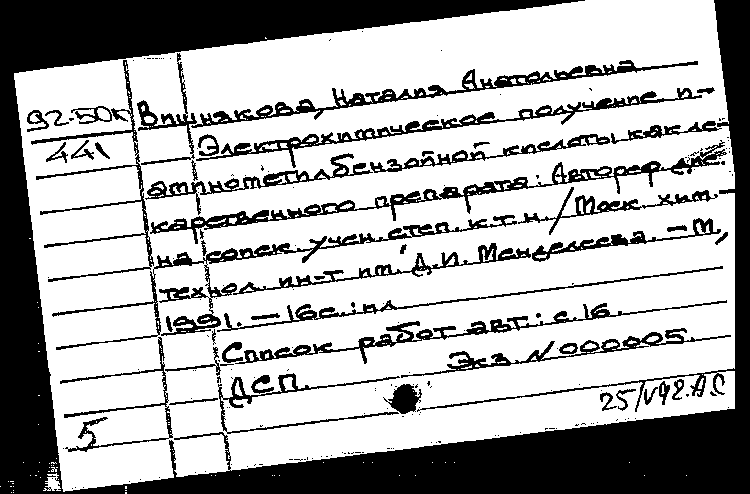 92-50к Вишнякова, Наталия Анатольевна
441 Электрохимическое получение п-
аминометилбензойной кислоты как ле-
карственного препарата: Автореф. дис.
на соиск. учен. степ. к.т.н. / Моск. хим.-
технол. ин-т им. Д.И. Менделеева. – М.,
1991. – 16с.: ил
Список работ авт.: с. 16.
ДСП. Экз. N 000005.
5 25/V92. АС